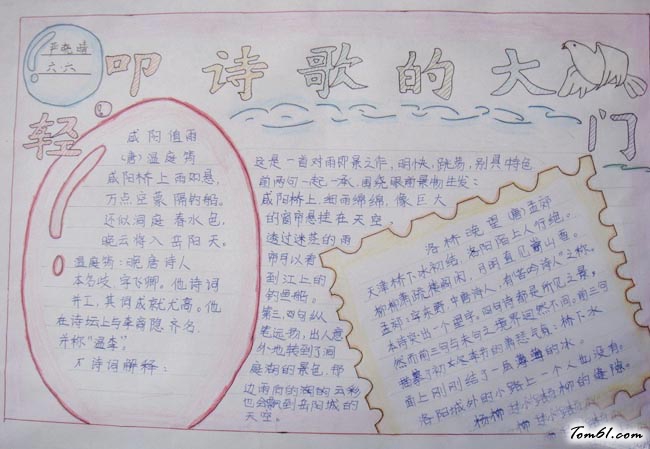 六.六
轻叩诗歌的大门
咸阳值雨
(唐)温庭筠
咸阳桥上雨如悬,
万点空蒙隔钓船。
还似洞庭春水色,
晓云将入岳阳天。
温庭筠:晚唐诗人
本名岐,字飞卿。他诗词
并工,其词成就尤高。他
在诗坛上与李商隐齐名,
并称"温李"
诗词解释:
这是一首对雨即景之作,明快,跳荡,别具特色
前两句一起一承,围绕眼前景物生发:
咸阳桥上,细雨绵绵,像巨大
的窗帘悬挂在天空。
透过迷茫的雨
帘可以看
到江上的
钓鱼船。
第三,四句纵
笔运物,出人意
外地转到了洞
庭湖的景色,那
边雨后的湖的云彩
也会飘到岳阳城的
天空。
洛桥晚望 (唐)孟郊
天津桥下冰初结,洛阳陌上人行绝。
榆柳萧疏楼阁闲,月明直见嵩山雪。
孟郊:字东野,中唐诗人,有"诗"之称。
本诗突出一个望字,四句诗都是所见之景,
然而前三句与末句之境界迥然不同。前三句
描摹了初冬次季节的萧瑟气氛:桥下冰
面上刚刚结了一层薄薄的冰。
洛阳城外的小路上一个人也没有,
杨柳
Tom61.com